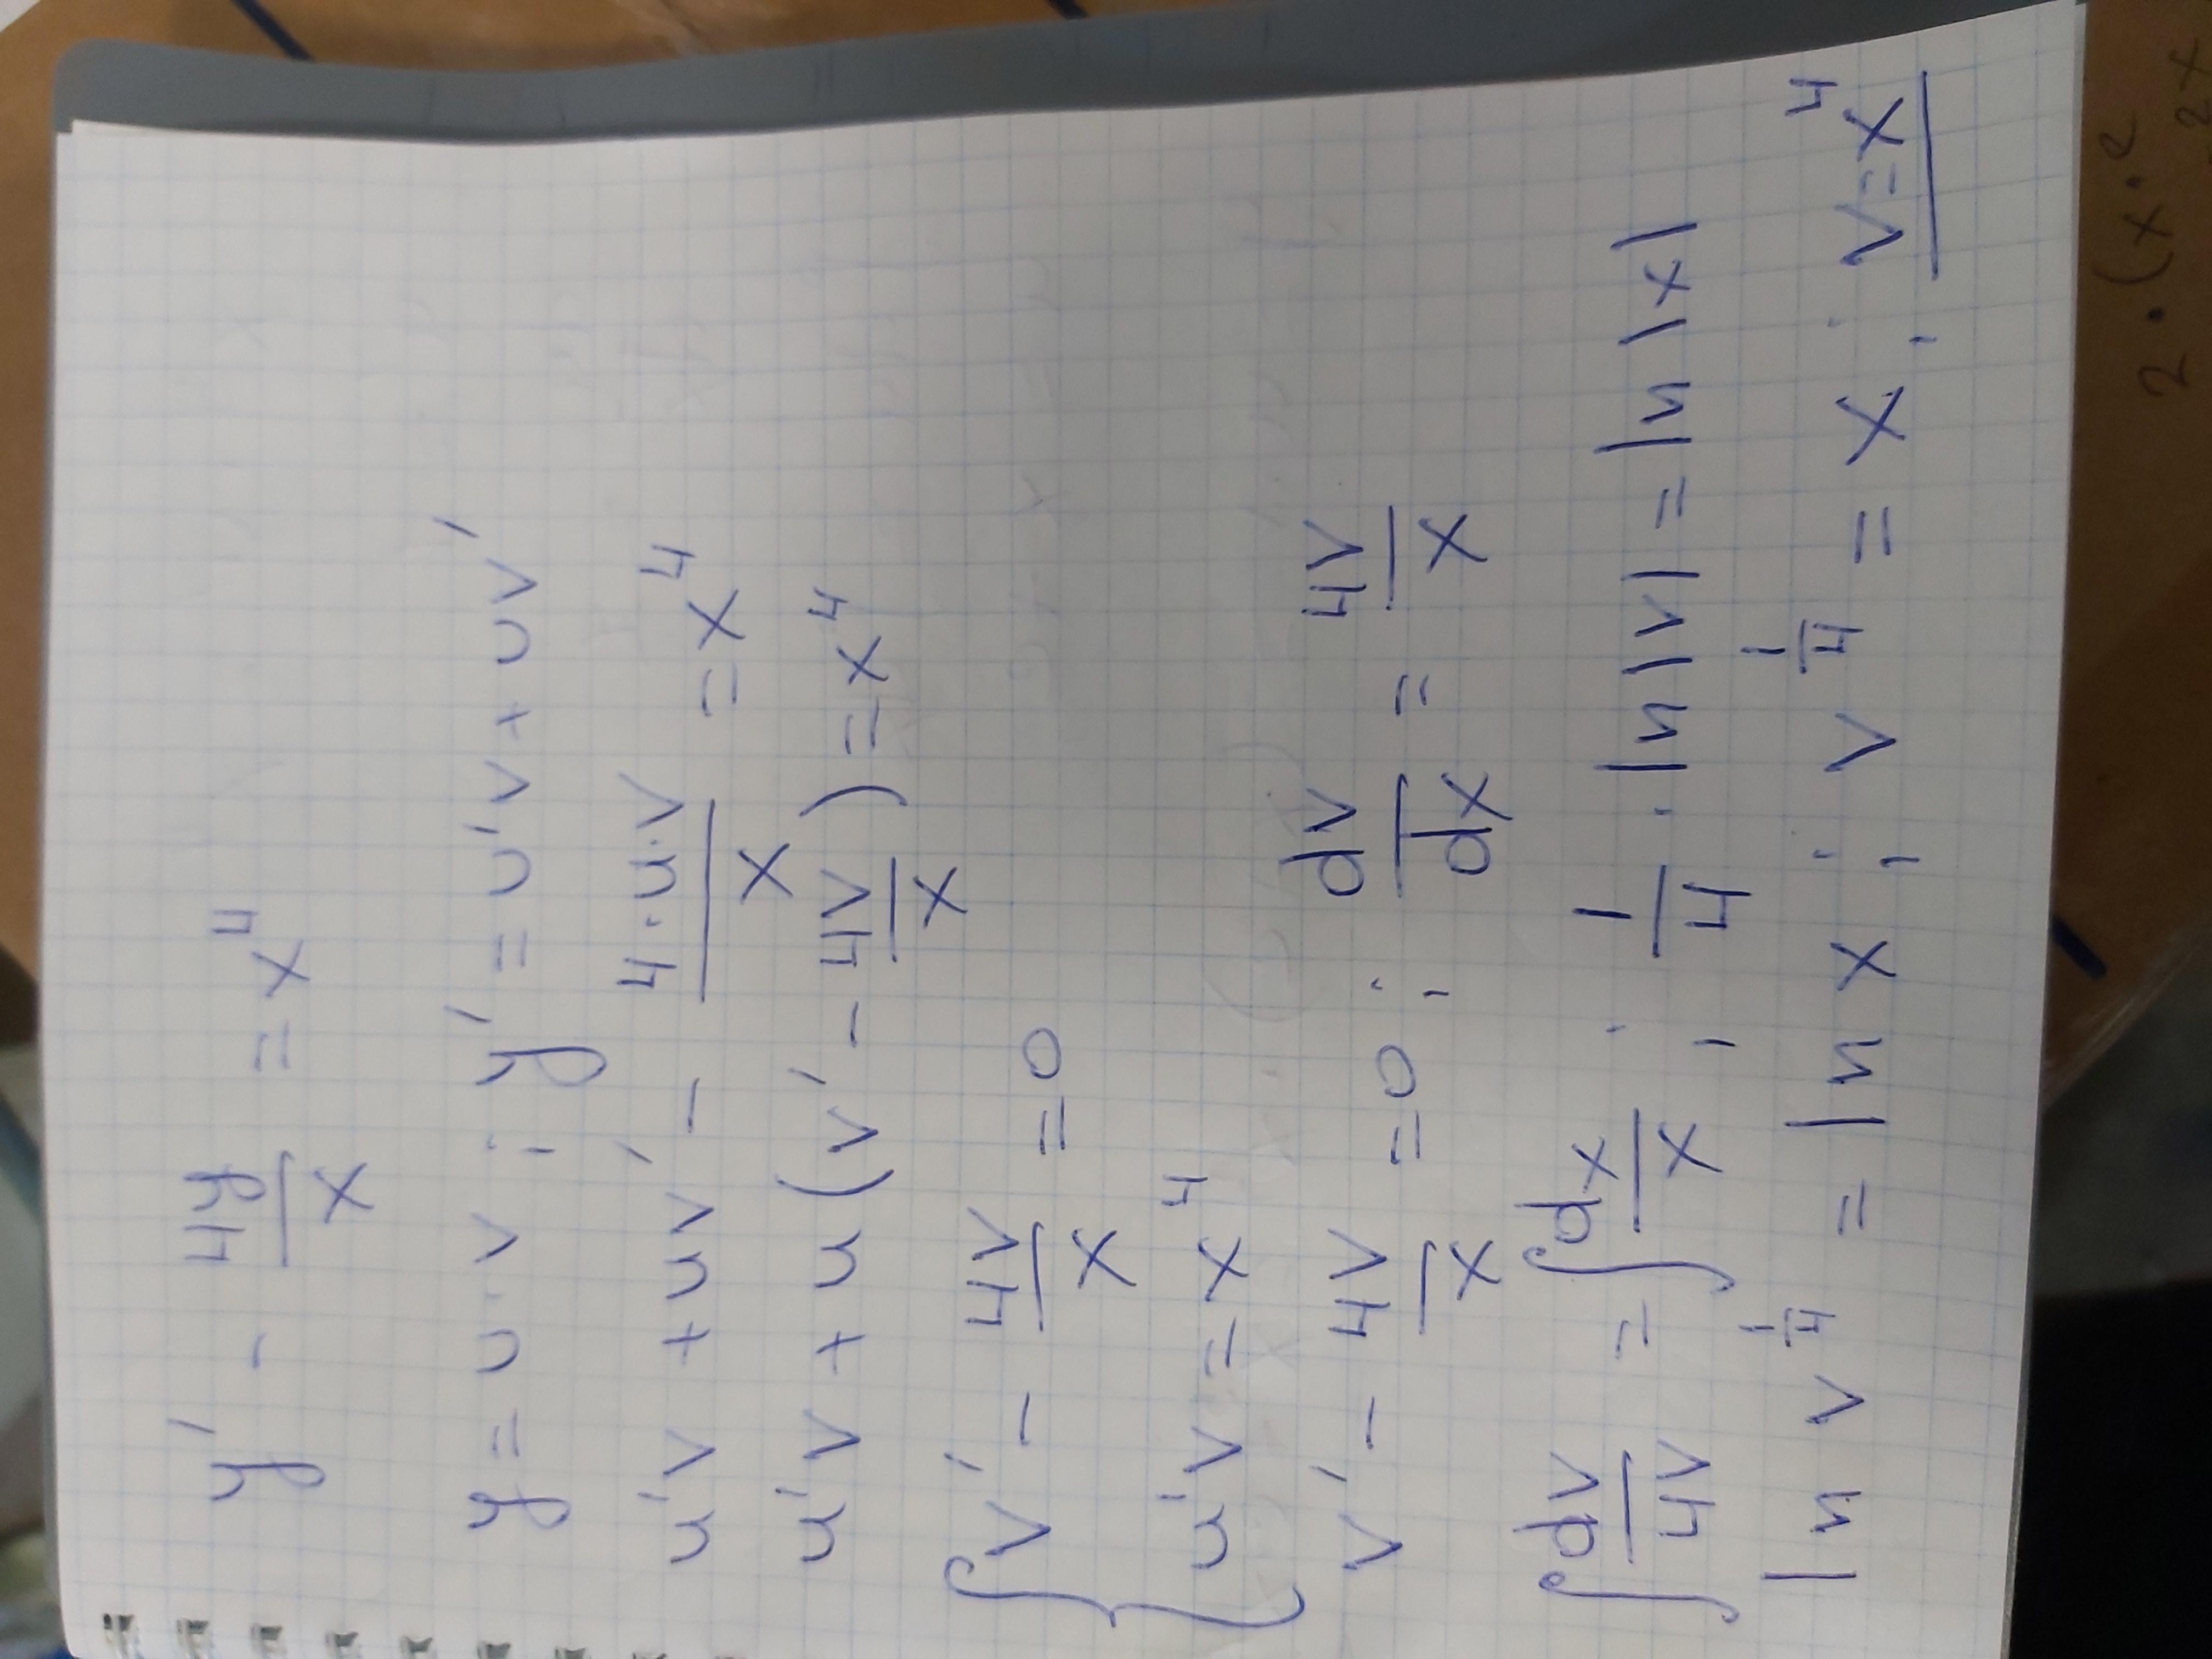 y' - 4y/x = x⁴
y = u·v ; y' = u'v + uv'
u'v + uv' - 4·u·v/x = x⁴
u'v + u(v' - 4v/x) = x⁴
{ v' - 4v/x = 0
u'v = x⁴
v' - 4v/x = 0 ; dv/dx = 4v/x
∫ dv/4v = ∫ dx/x ; 1/4 · ln |v| = ln |x|
ln v^1/4 = ln x ; v^1/4 = x ; v = x⁴
2 · (x · 2
2x